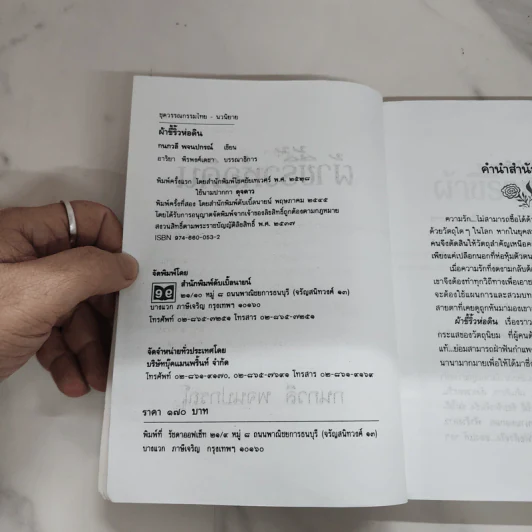 ชุดวรรณกรรมไทย - นวนิยาย
ผ้าขี้ริ้วห่อดิน
กนกวลี พจนปกรณ์ เขียน
อารียา พีรพงศ์เดชา บรรณาธิการ
พิมพ์ครั้งแรก โดยสำนักพิมพ์โชคชัยเทเวศร์ พ.ศ. ๒๕๒๘
ใช้นามปากกา
พิมพ์ครั้งที่สอง โดยสำนักพิมพ์ดับเบิ้ลนายน์ พฤษภาคม ๒๕๔๕
โดยได้รับการอนุญาตจากเจ้าของลิขสิทธิ์ถูกต้องตามกฎหมาย
สงวนลิขสิทธิ์ตามพระราชบัญญัติลิขสิทธิ์ พ.ศ. ๒๕๓๗
ISBN 974-660-053-2
จัดพิมพ์โดย
สำนักพิมพ์ดับเบิ้ลนายน์
๒๑/๑๐ หมู่ ๘ ถนนพาณิชยการธนบุรี (จรัญสนิทวงศ์ ๑๓)
บางแวก ภาษีเจริญ กรุงเทพฯ ๑๐๑๖๐
โทรศัพท์ ๐๒-๘๖๕-๓๒๕๑ โทรสาร ๐๒-๘๖๕-๓๒๕๑
จัดจำหน่ายทั่วประเทศโดย
บริษัทบุ๊คแมนพริ้นท์ จำกัด
โทรศัพท์ ๐๒-๘๖๑-๔๑๗๐, ๐๒-๘๖๕-๗๖๔๑ โทรสาร ๐๒-๘๖๑-๔๑๖๔
ราคา ๑๗๐ บาท
พิมพ์ที่ รัชดาออฟเซ็ท ๒๑/๙ หมู่ ๘ ถนนพาณิชยการธนบุรี (จรัญสนิทวงศ์ ๑๓)
บางแวก ภาษีเจริญ กรุงเทพฯ ๑๐๑๖๐
คำนำสำนัก
ความรัก...ไม่สามารถซื้อได้ด้
ด้วยวัตถุใดๆ ในโลก หากในยุคส
คนจึงตัดสินให้วัตถุสำคัญเหนือค
เพียงแค่เปลือกนอกที่ห่อหุ้มตัวตน
เมื่อความรักที่งดงามกลับต้
เขาจึงต้องทำทุกวิถีทางเพื่อเอา
จะต้องใช้แผนการและสวมบท
สายตาที่เคยดูถูกหันมามองเขา
ผ้าขี้ริ้วห่อดิน เรื่องราว
กระแสของวัตถุนิยม ที่ผู้คนต่
แท้...ย่อมสามารถฝ่าฟันกำแพ
นานามากมายเพื่อให้ได้มาซึ่ง